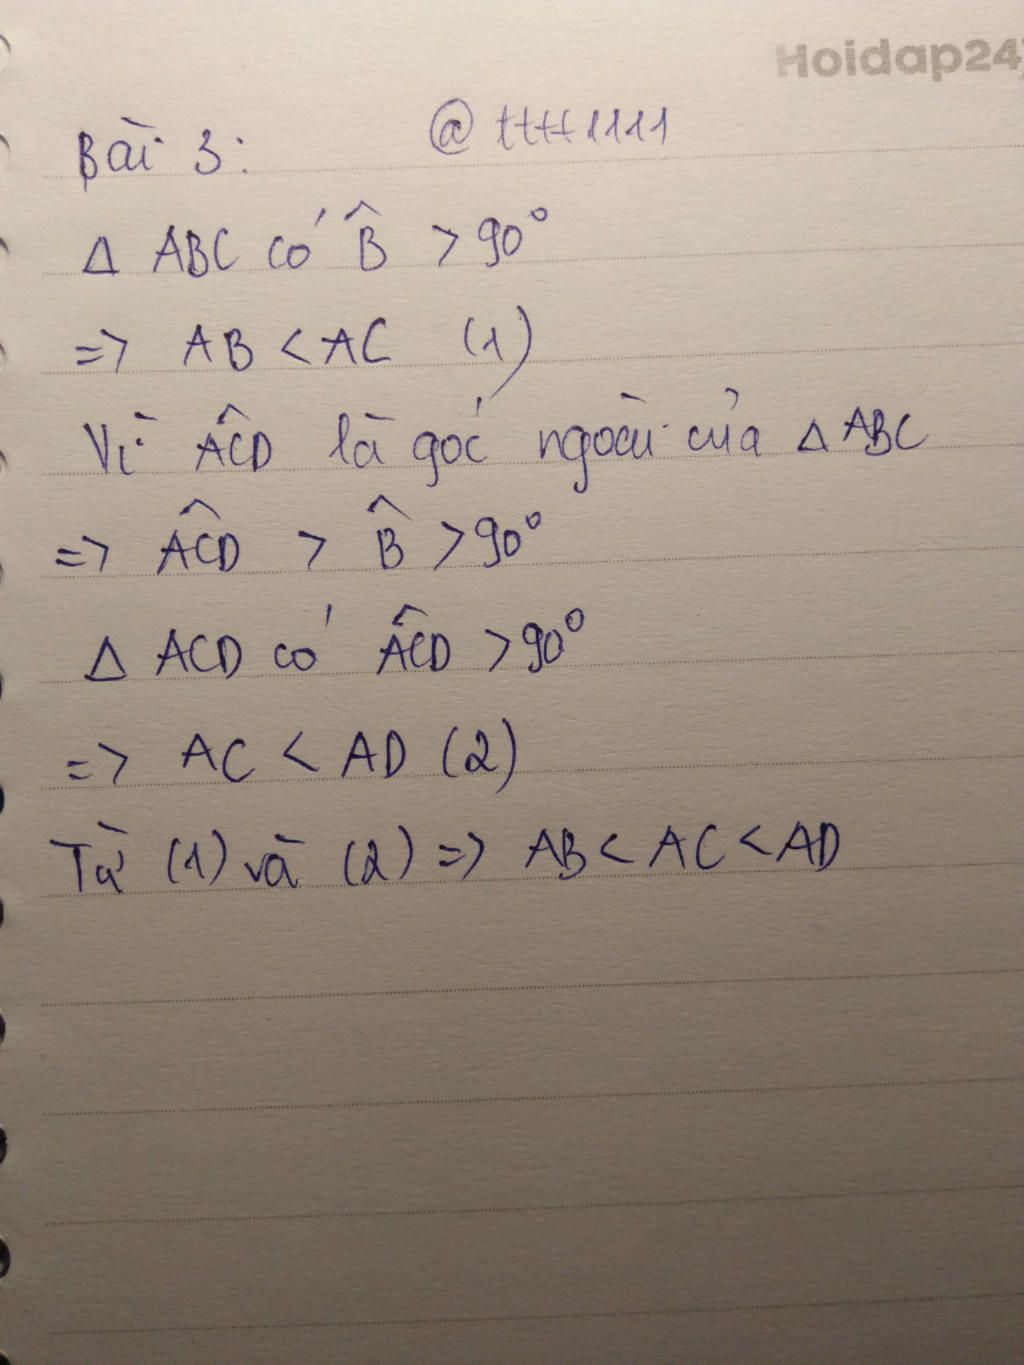 Hoidap247
Bài 3: @tttt1111
Δ ABC có B̂ > 90°
=> AB < AC (1)
Vì ACD̂ là góc ngoài của Δ ABC
=> ACD̂ > B̂ > 90°
Δ ACD có ACD̂ > 90°
=> AC < AD (2)
Từ (1) và (2) => AB < AC < AD